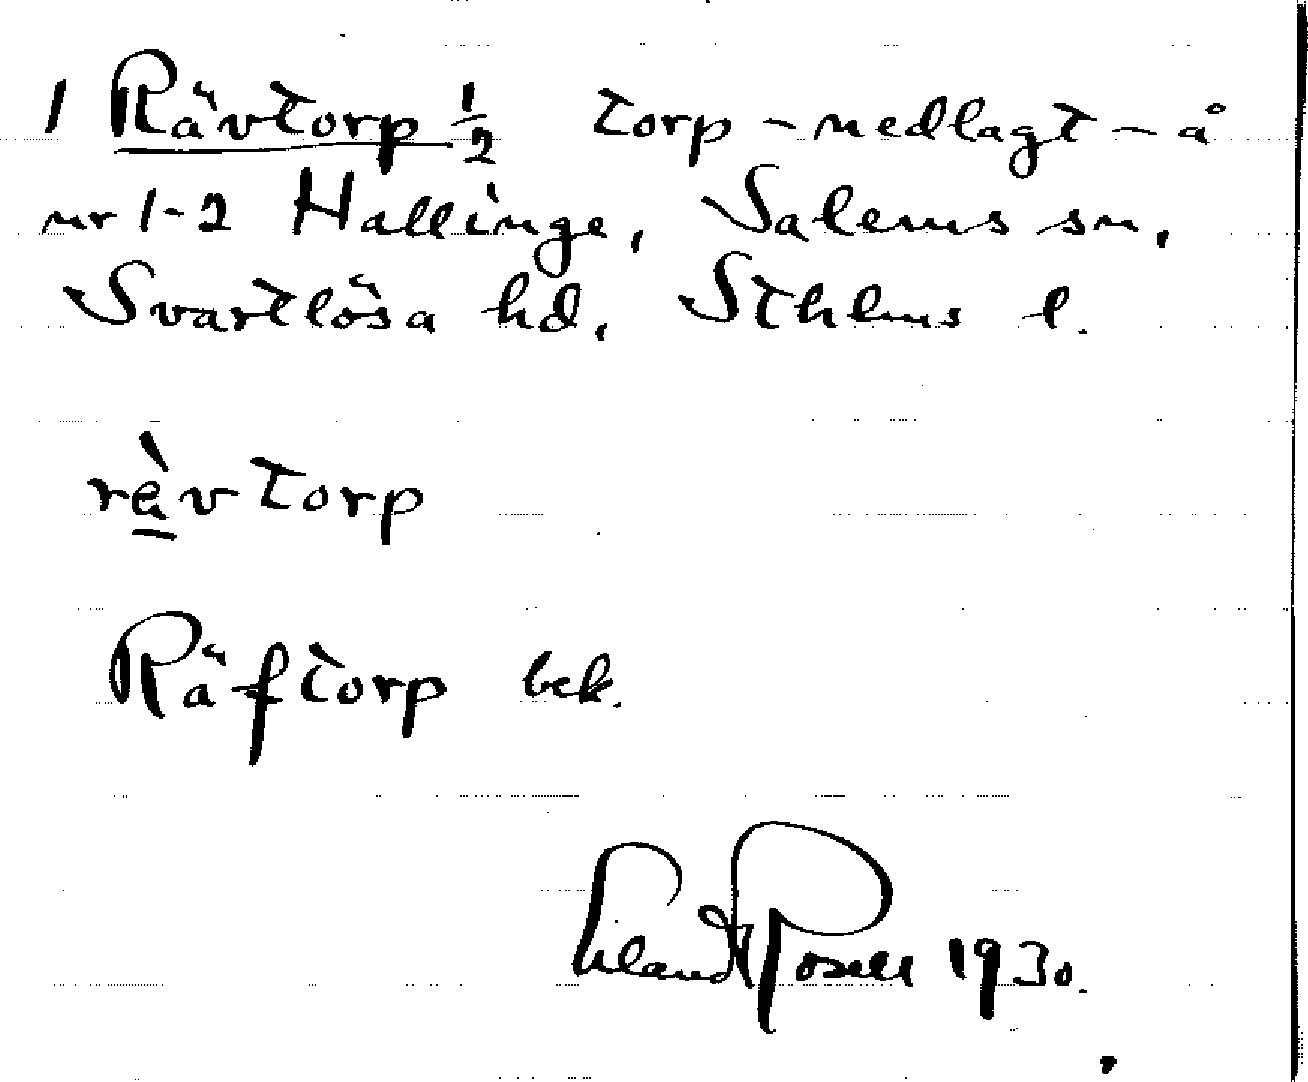 1 Rävtorp ½ torp - nedlagt - å
nr 1-2 Hallinge, Salems sn,
Svartlösa hd, Sthlms l.
rèvtorp
Räftorp bek.
Erland Rosell 1930.